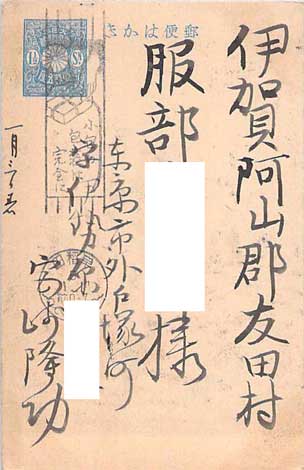 郵便はかき
伊賀阿山郡友田村
服部
様
東京市外戸塚町
字伊勢原
隆功
一月
小包
完全に
1½